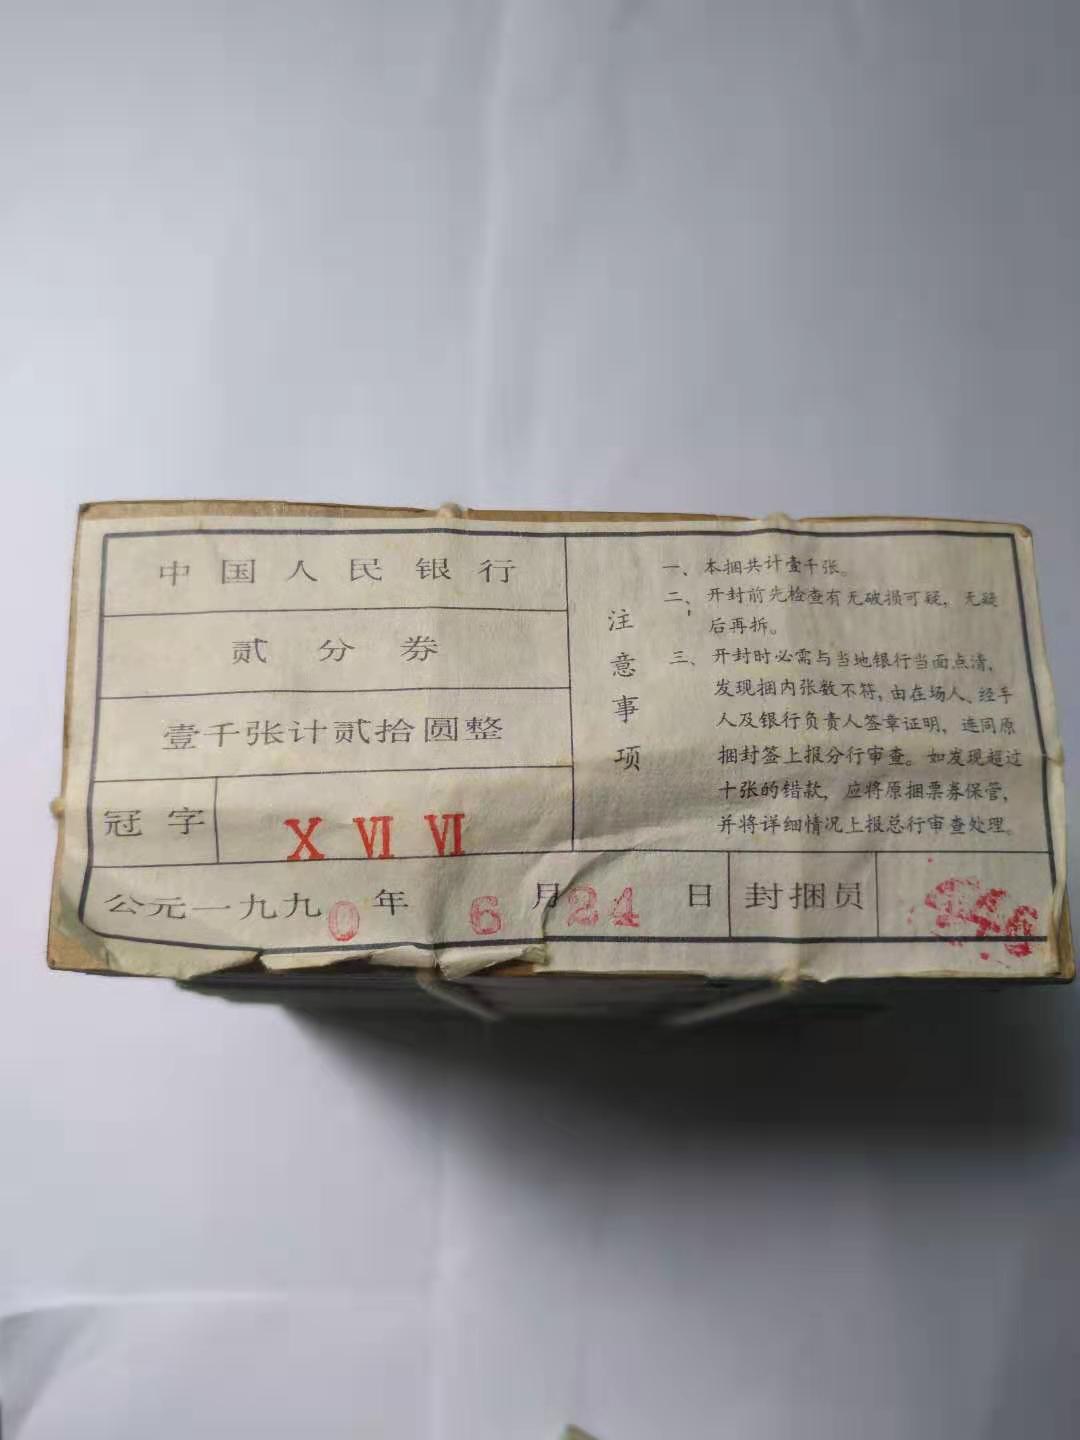 中国人民银行
贰分券
壹千张计贰拾圆整
冠字 X VI VI
公元一九九0年6月24日 封捆员
注意事项
一、本捆共计壹千张。
二、开封前先检查有无破损可疑，无疑
后再拆。
三、开封时必需与当地银行当面点清，
发现捆内张数不符，由在场人、经手
人及银行负责人签章证明，连同原
捆封签上报分行审查。如发现超过
十张的错款，应将原捆票券保管，
并将详细情况上报总行审查处理。